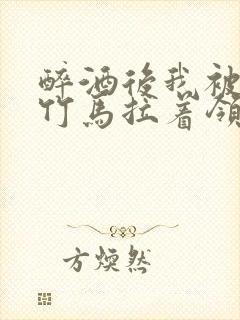 醉酒後我被
竹馬拉着領
方煥然